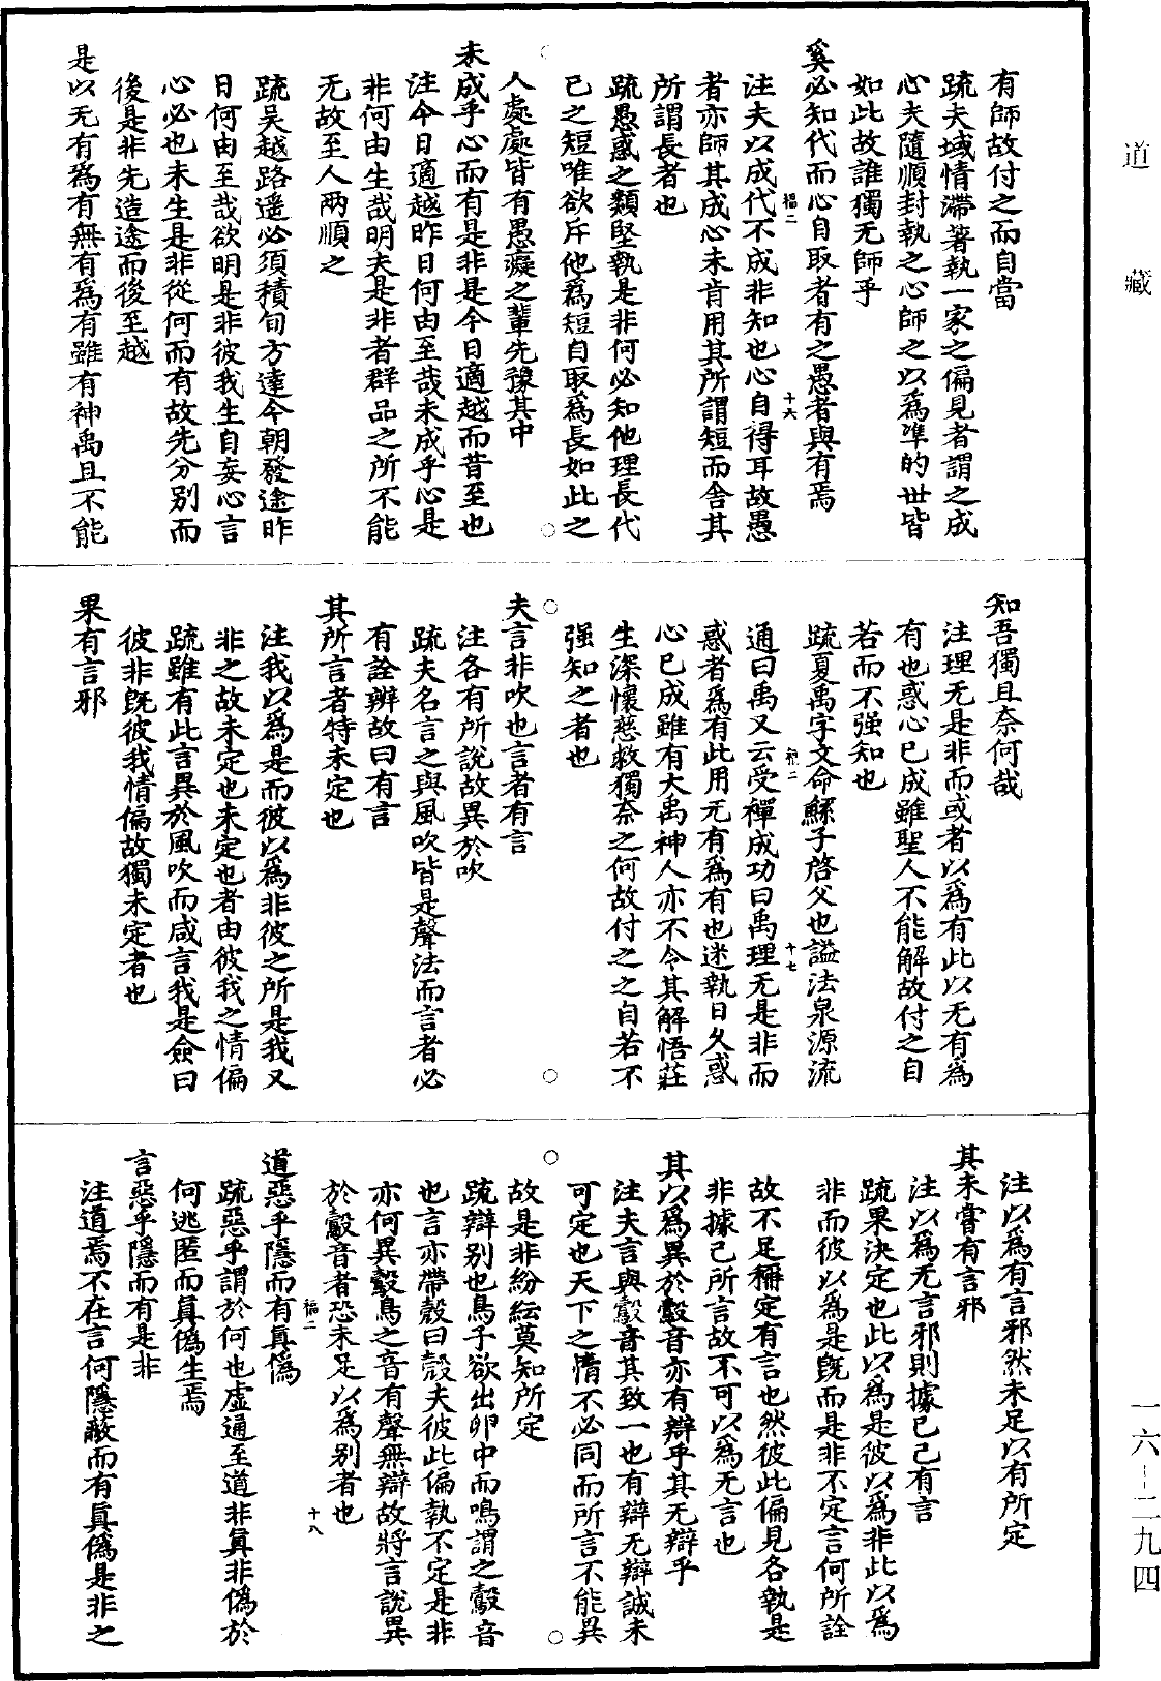 道藏
有師故付之而自當
疏夫域情滯著執一家之偏見者謂之成
心夫隨順封執之心師之以爲準的世皆
如此故誰獨无師乎
奚必知代而心自取者有之愚者與有焉
福二
十六
注夫以成代不成非知也心自得耳故愚
者亦師其成心未肯用其所謂短而舍其
所謂長者也
疏愚惑之類堅執是非何必知他理長代
己之短唯欲斥他爲短自取爲長如此之
人處處皆有愚癡之輩先豫其中
未成乎心而有是非是今日適越而昔至也
注今日適越昨日何由至哉未成乎心是
非何由生哉明夫是非者群品之所不能
无故至人兩順之
疏吳越路遥必須積旬方達今朝發途昨
日何由至哉欲明是非彼我生自妄心言
心必也未生是非從何而有故先分别而
後是非先造途而後至越
是以无有爲有無有爲有雖有神禹且不能
知吾獨且奈何哉
注理无是非而或者以爲有此以无有爲
有也惑心已成雖聖人不能解故付之自
若而不强知也
疏夏禹字文命鯀子啓父也謚法泉源流
十七
通曰禹又云受禪成功曰禹理无是非而
惑者爲有此用无有爲有也迷執日久惑
心已成雖有大禹神人亦不令其解悟莊
生深懷慈救獨奈之何故付之之自若不
强知之者也
夫言非吹也言者有言
注各有所說故異於吹
疏夫名言之與風吹皆是聲法而言者必
有詮辨故曰有言
其所言者特未定也
注我以爲是而彼以爲非彼之所是我又
非之故未定也未定也者由彼我之情偏
疏雖有此言異於風吹而咸言我是僉曰
彼非旣彼我情偏故獨未定者也
果有言邪
注以爲有言邪然未足以有所定
其未嘗有言邪
注以爲无言邪則據已己有言
疏果決定也此以爲是彼以爲非此以爲
非而彼以爲是旣而是非不定言何所詮
故不足稱定有言也然彼此偏見各執是
非據己所言故不可以爲无言也
其以爲異於鷇音亦有辯乎其无辯乎
注夫言與鷇音其致一也有辯无辯誠未
可定也天下之情不必同而所言不能異
故是非紛紜莫知所定
疏辯别也鳥子欲出卵中而鳴謂之鷇音
也言亦帶殼曰殼夫彼此偏執不定是非
亦何異鷇鳥之音有聲無辯故將言說異
於鷇音者恐未足以爲别者也
福二
十八
道惡乎隱而有眞僞
疏惡乎謂於何也虛通至道非眞非僞於
何逃匿而眞僞生焉
言惡乎隱而有是非
注道焉不在言何隱蔽而有眞僞是非之
一六-二九四